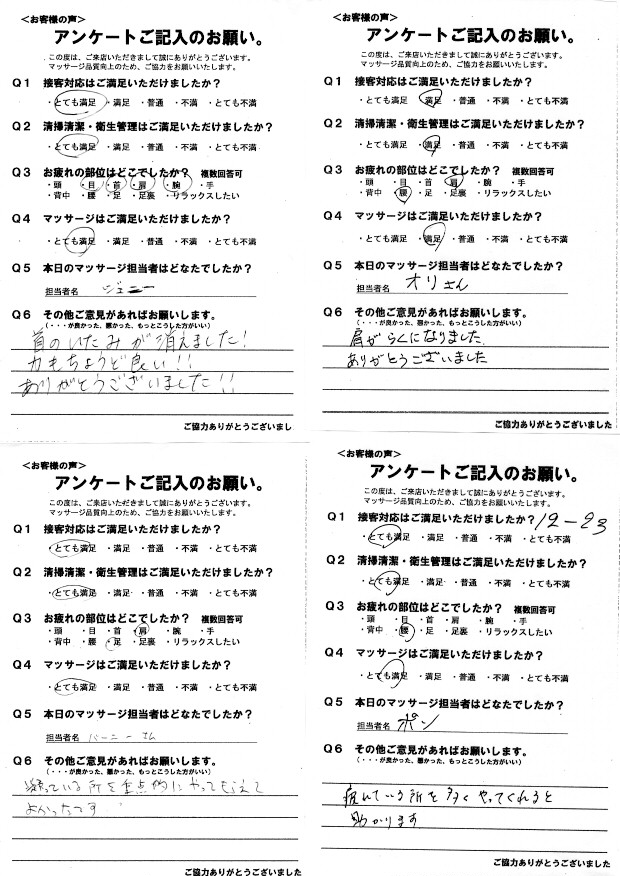 ＜お客様の声＞
アンケートご記入のお願い。
この度は、ご来店いただきまして誠にありがとうございます。
マッサージ品質向上のため、ご協力をお願いいたします。
Q1 接客対応はご満足いただけましたか？
・とても満足 ・満足 ・普通 ・不満 ・とても不満
Q2 清掃清潔・衛生管理はご満足いただけましたか？
・とても満足 ・満足 ・普通 ・不満 ・とても不満
Q3 お疲れの部位はどこでしたか？ 複数回答可
・頭 ・目 ・首 ・肩 ・腕 ・手
・背中 ・腰 ・足 ・足裏 ・リラックスしたい
Q4 マッサージはご満足いただけましたか？
・とても満足 ・満足 ・普通 ・不満 ・とても不満
Q5 本日のマッサージ担当者はどなたでしたか？
担当者名 ジェニー
Q6 その他ご意見があればお願いします。
(・・・が良かった、悪かった、もっとこうした方がいい)
首のいたみが消えました!
力もちょうど良い!!
ありがとうございました!!
ご協力ありがとうございまし
＜お客様の声＞
アンケートご記入のお願い。
この度は、ご来店いただきまして誠にありがとうございます。
マッサージ品質向上のため、ご協力をお願いいたします。
Q1 接客対応はご満足いただけましたか？
・とても満足 満足 ・普通 ・不満 ・とても不満
Q2 清掃清潔・衛生管理はご満足いただけましたか？
・とても満足 ・満足 ・普通 ・不満 ・とても不満
Q3 お疲れの部位はどこでしたか？ 複数回答可
・頭 ・目 ・首 肩 ・腕 ・手
・背中 腰 ・足 ・足裏 ・リラックスしたい
Q4 マッサージはご満足いただけましたか？
・とても満足 ・満足 ・普通 ・不満 ・とても不満
Q5 本日のマッサージ担当者はどなたでしたか？
担当者名 オリさん
Q6 その他ご意見があればお願いします。
(・・・が良かった、悪かった、もっとこうした方がいい)
肩がらくになりました
ありがとうございました
ご協力ありがとうございました
＜お客様の声＞
アンケートご記入のお願い。
この度は、ご来店いただきまして誠にありがとうございます。
マッサージ品質向上のため、ご協力をお願いいたします。
Q1 接客対応はご満足いただけましたか？
・とても満足 ・満足 ・普通 ・不満 ・とても不満
Q2 清掃清潔・衛生管理はご満足いただけましたか？
・とても満足 ・満足 ・普通 ・不満 ・とても不満
Q3 お疲れの部位はどこでしたか？ 複数回答可
・頭 ・目 ・首 ・肩 ・腕 ・手
・背中 ・腰 ・足 ・足裏 ・リラックスしたい
Q4 マッサージはご満足いただけましたか？
・とても満足 ・満足 ・普通 ・不満 ・とても不満
Q5 本日のマッサージ担当者はどなたでしたか？
担当者名 バーニー
Q6 その他ご意見があればお願いします。
(・・・が良かった、悪かった、もっとこうした方がいい)
凝っている所を重点的にやってもらえて
よかったです
ご協力ありがとうございました
＜お客様の声＞
アンケートご記入のお願い。
この度は、ご来店いただきまして誠にありがとうございます。
マッサージ品質向上のため、ご協力をお願いいたします。
Q1 接客対応はご満足いただけましたか？ 12-23
・とても満足 ・満足 ・普通 ・不満 ・とても不満
Q2 清掃清潔・衛生管理はご満足いただけましたか？
・とても満足 ・満足 ・普通 ・不満 ・とても不満
Q3 お疲れの部位はどこでしたか？ 複数回答可
・頭 ・目 ・首 ・肩 ・腕 ・手
・背中 腰 ・足 ・足裏 ・リラックスしたい
Q4 マッサージはご満足いただけましたか？
・とても満足 ・満足 ・普通 ・不満 ・とても不満
Q5 本日のマッサージ担当者はどなたでしたか？
担当者名 ポン
Q6 その他ご意見があればお願いします。
(・・・が良かった、悪かった、もっとこうした方がいい)
疲れている所を多くやってくれると
助かります
ご協力ありがとうございました